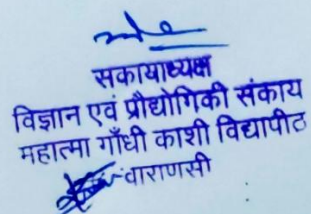 संकायाध्यक्ष
विज्ञान एवं प्रौद्योगिकी संकाय
महात्मा गाँधी काशी विद्यापीठ
वाराणसी